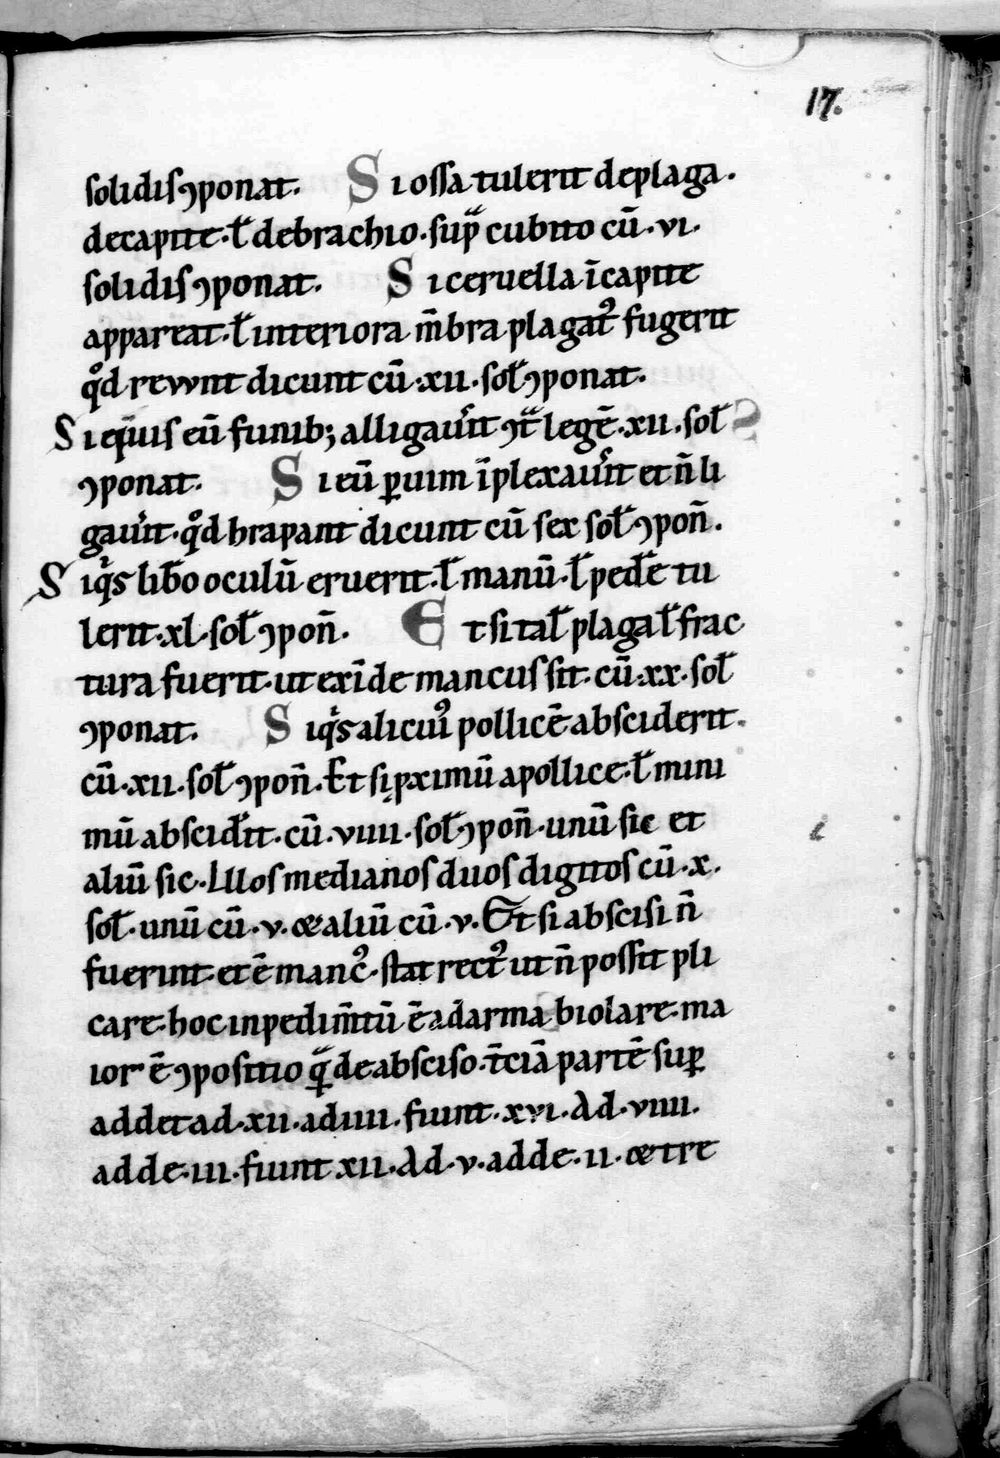 17.
solidis ꝯponat. Si ossa tulerit de plaga.
decapite. ł de brachio. sup̄ cubito cū .vi.
solidis ꝯponat. Si ceruella ī capite
appareat. ł interiora m̄bra plagatꝰ fugerit
qͦd revvnt dicunt cū .xii. soł ꝯponat.
Si eq̄uis eū funibꝫ alligaűit ꝯt̄ legē .xii. soł
ꝯponat. Si eū ꝑ uim īplexaűit et n̄ li
gaűit. qͦd hrapant dicunt cū sex soł ꝯpon̄.
Si qͥs libo oculū eruerit. ł manū. ł pedē tu
lerit .xl. soł ꝯpon̄. Et si tał plaga ł frac
tura fuerit. ut exīde mancus sit. cū .xx. soł
ꝯponat. Si qͥs alicuiꝰ pollicē absciderit.
cū .xii. soł ꝯpon̄. Et si ꝓximū a pollice. ł mini
mū absciďit. cū .viiii. soł ꝯpon̄. unū sic et
aliū sic. Illos medianos duos digitos cū .x.
soł. unū cū .v. & aliū cū .v. Et si abscisi n̄
fuerint. et ē mancꝰ. stat rectꝰ ut n̄ possit pli
care. hoc inpedim̄tū ē ad arma biolare. ma
ior ē ꝯpositio q̄ de absciso. t̄ciā partē suꝑ
addet ad .xii. ad iiii. fiunt .xvi. Ad .viiii.
adde .iii. fiunt xii. Ad .v. adde .ii. & tre